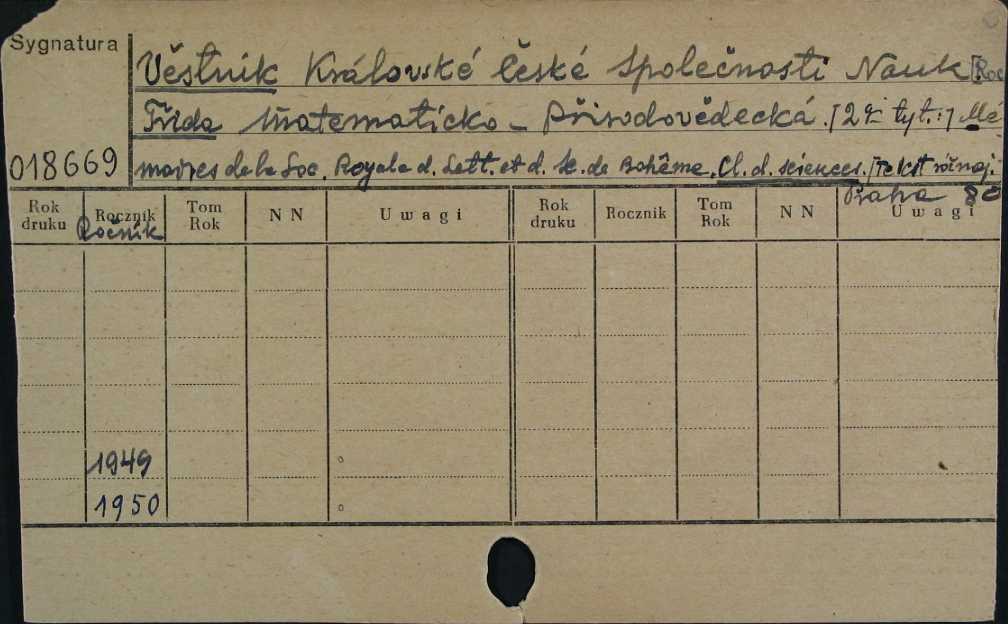 Sygnatura
Věstnik Královské České Společnosti Nauk. [Roc
Třída matematicko - Přirodovědecká. [2-i tyt.:] Me-
018669 moires de la Soc. Royale d. Lett. et d. Sc. de Bohême. Cl. d. sciences. /Tekst różnoj.
Praha 8°
Rok druku Rocznik Tom Rok NN Uwagi Rok druku Rocznik Tom Rok NN Uwagi
Ročnik
1949
1950